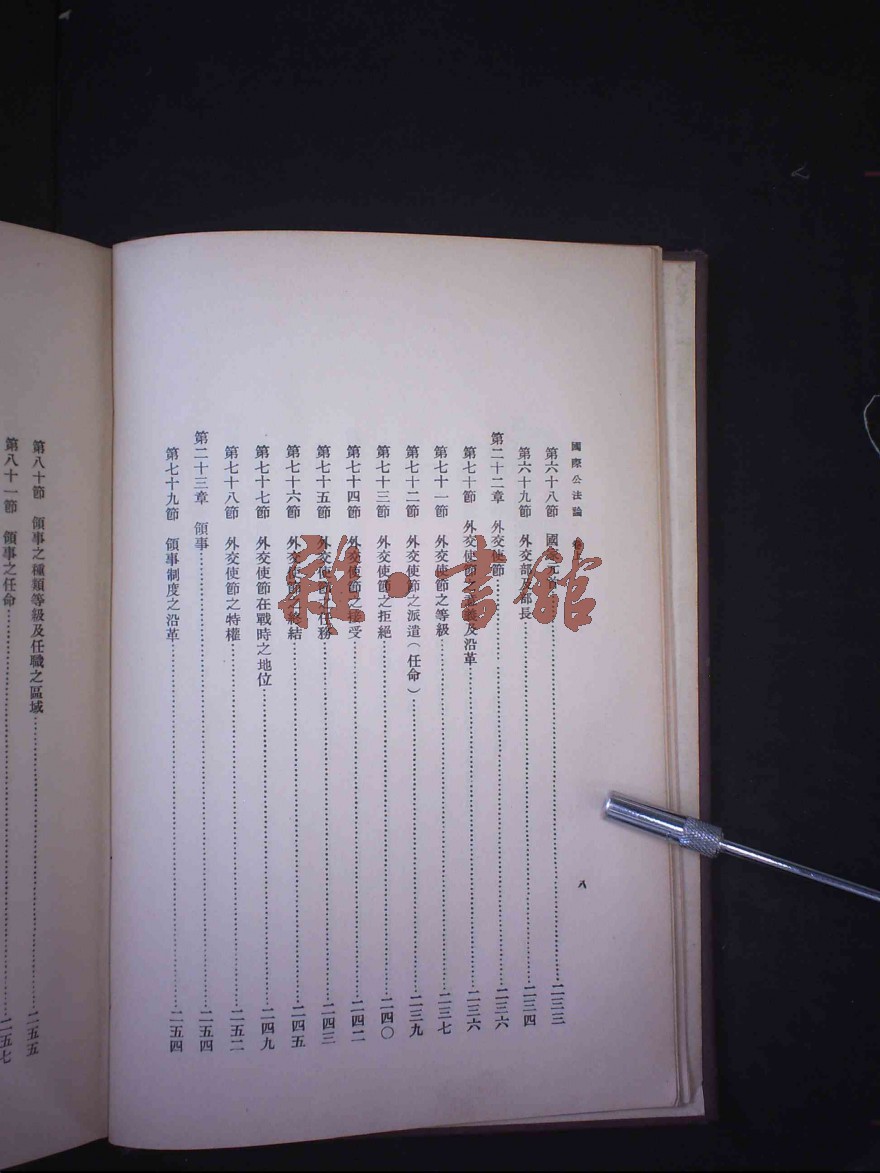 國際公法論
第六十八節　國家元首……二三三
第六十九節　外交部及部長……二三四
第二十二章　外交使節……二三六
第七十節　外交使節之及沿革……二三六
第七十一節　外交使節之等級……二三七
第七十二節　外交使節之派遣（任命）……二三九
第七十三節　外交使節之拒絕……二四〇
第七十四節　外交使節之接受……二四二
第七十五節　外交使節之任務……二四三
第七十六節　外交使節之終結……二四五
第七十七節　外交使節在戰時之地位……二四九
第七十八節　外交使節之特權……二五二
第二十三章　領事……二五四
第七十九節　領事制度之沿革……二五四
八
第八十節　領事之種類等級及任職之區域……二五五
第八十一節　領事之任命……二五七
雜·書館